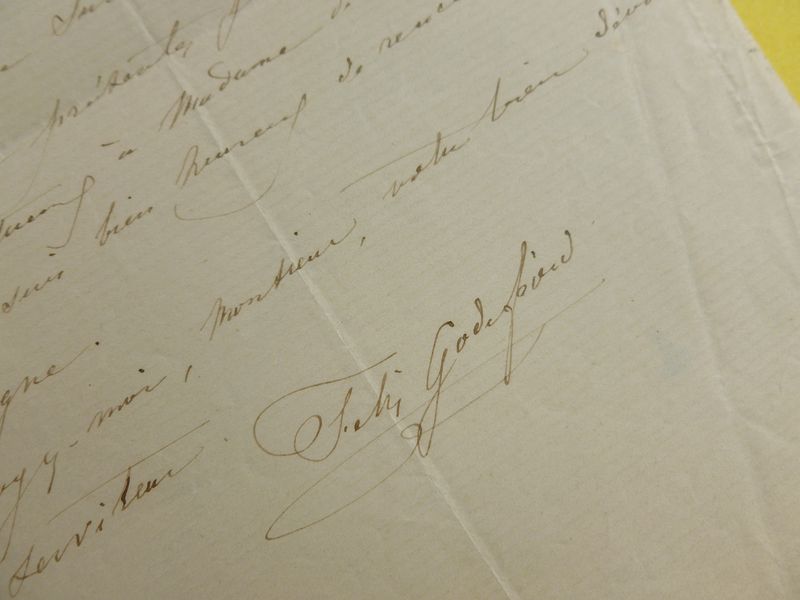 présenter
à Madame
suis bien heureux de
gne.
moi, Monsieur, votre bien dévo
serviteur.
Felix Godefroid